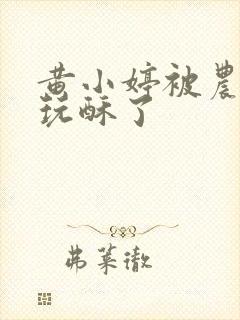 黄小婷被農
玩酥了
弗莱徹